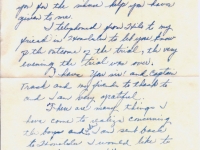 you for the sincere help you have
given to me.
I telephoned from Hilo to my
friend in Honolulu to let you know
of the outcome of the trial, the very
evening the trial was over.
I have you and Captain
and my friends to thank
and I am very grateful.
There are many things I
have come to realize concerning
the boys and I am back
to Honolulu I would like to